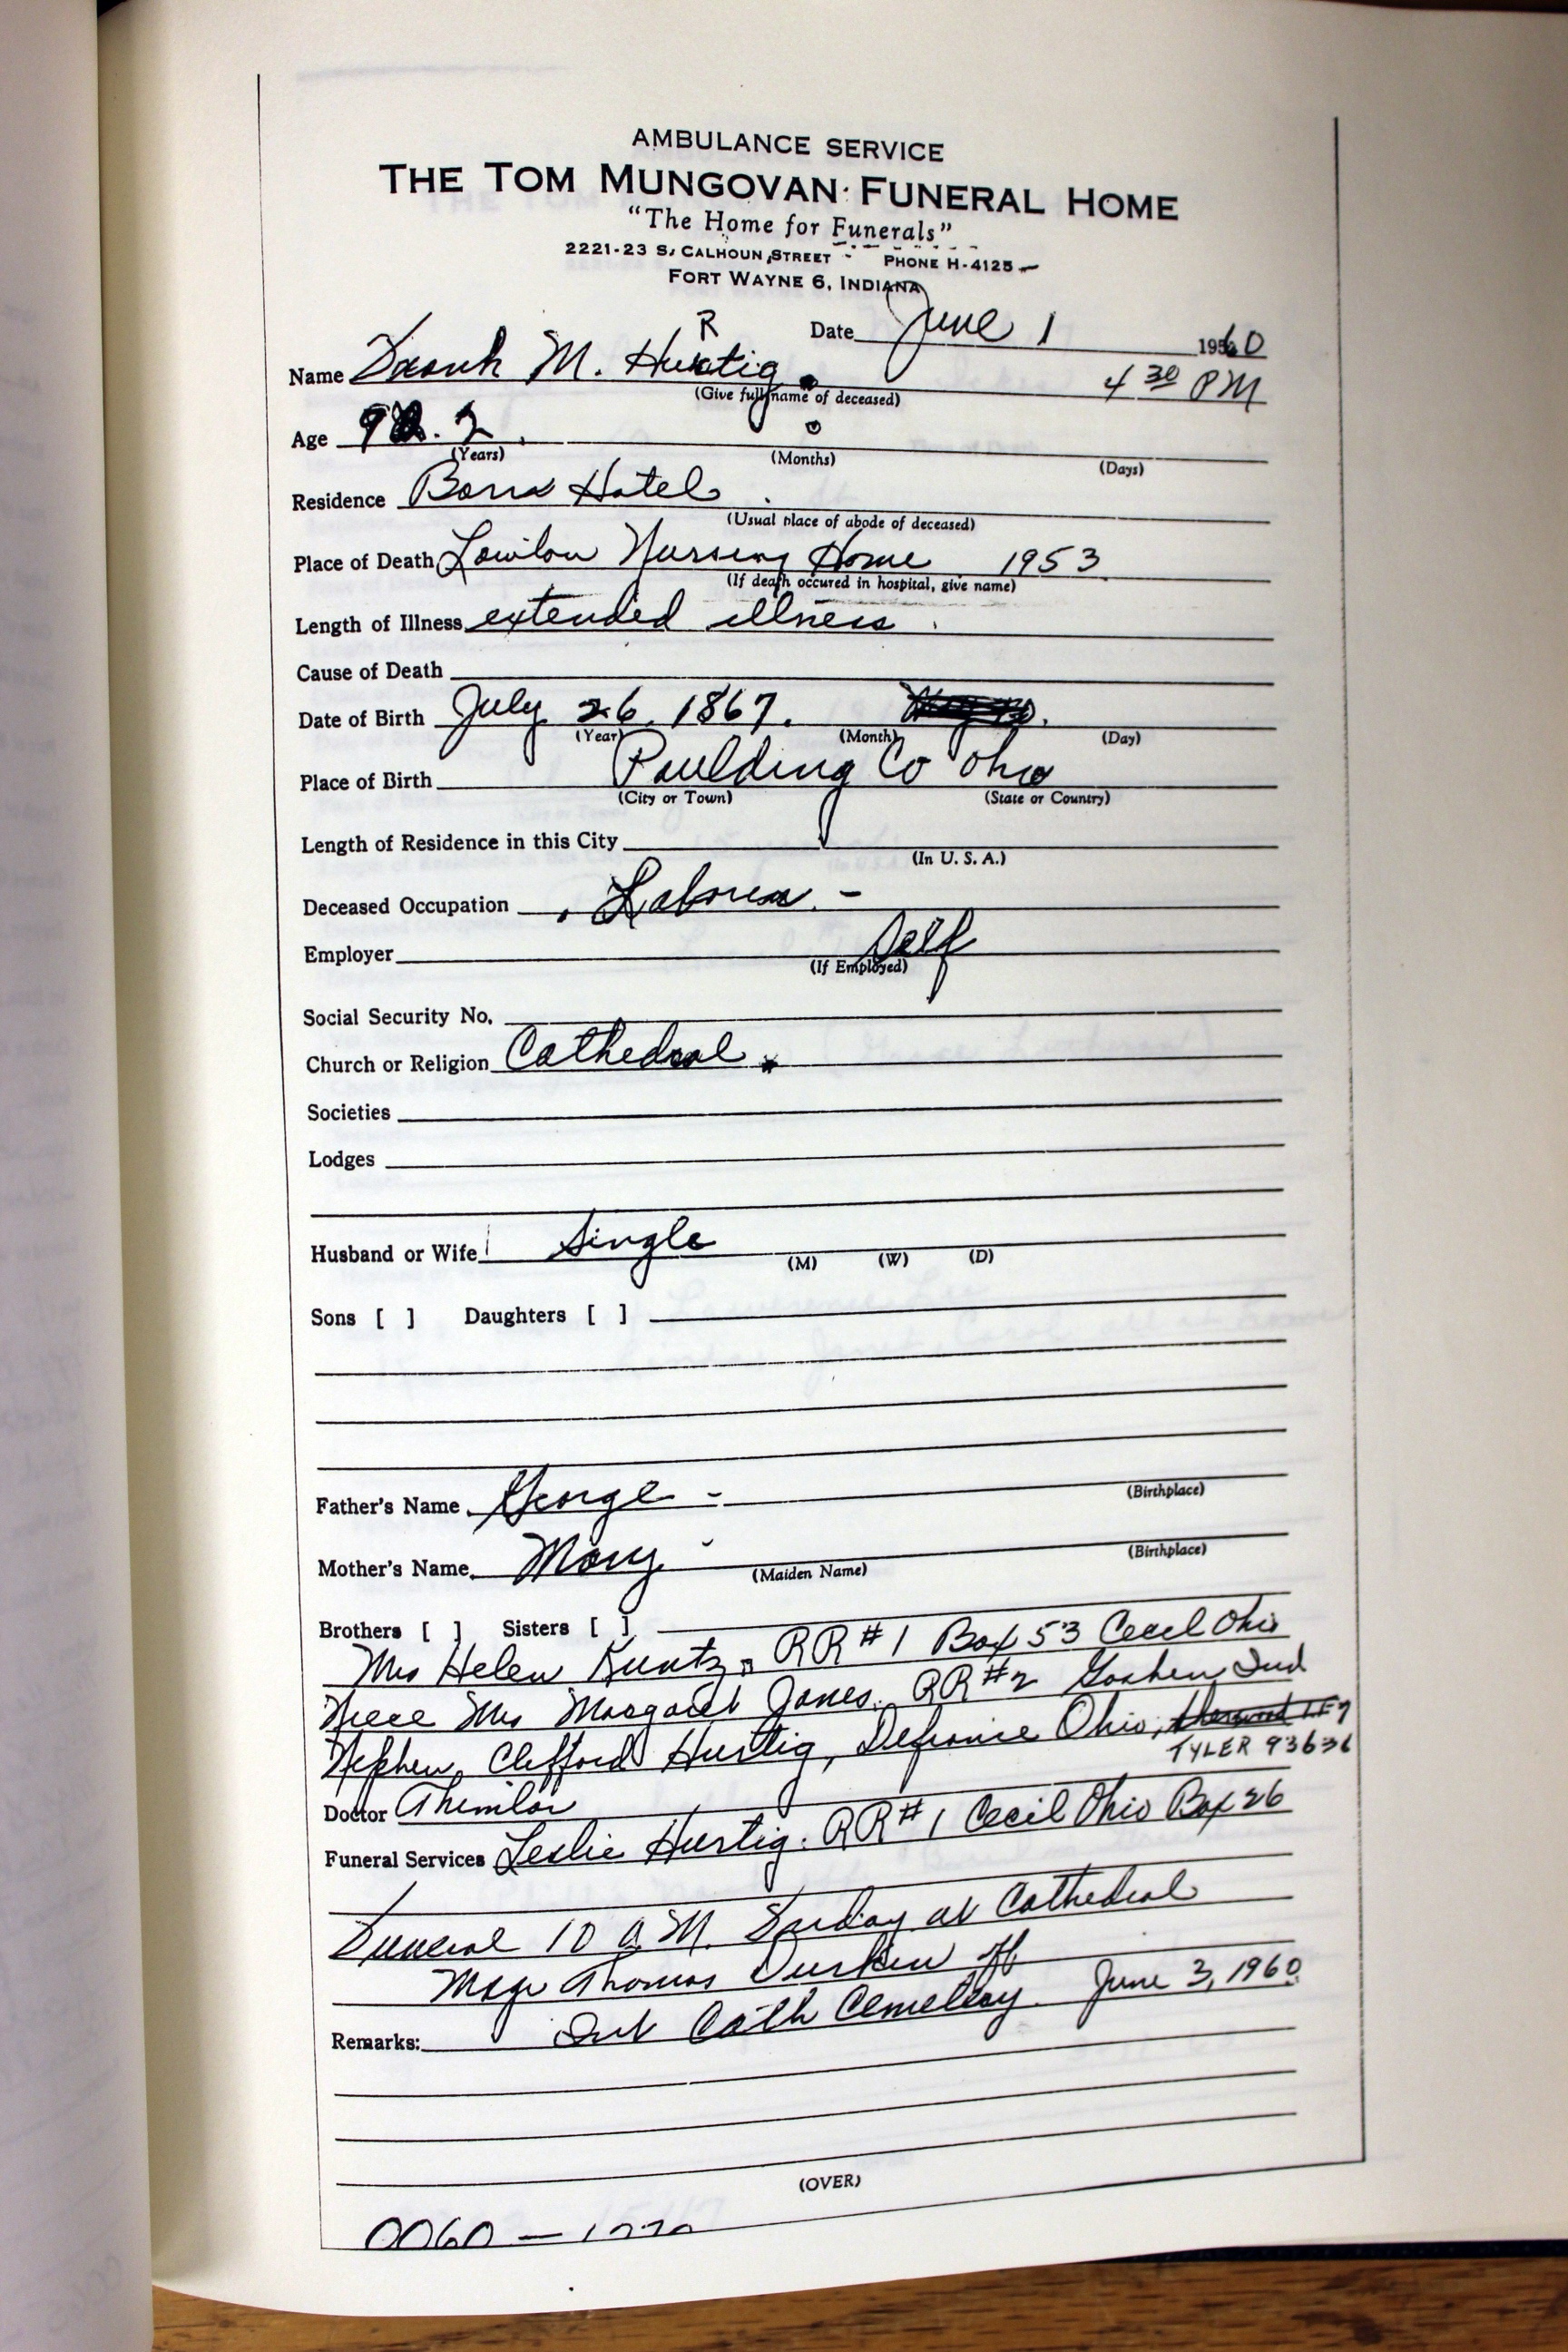 AMBULANCE SERVICE
THE TOM MUNGOVAN FUNERAL HOME
"The Home for Funerals"
2221-23 S. CALHOUN STREET - PHONE H-4125
FORT WAYNE 6, INDIANA
Date June 1 1960
R
Name Frank M. Hurtig 4 30 PM
(Give full name of deceased)
Age 92
(Years) (Months) (Days)
Residence Hotel
(Usual place of abode of deceased)
Place of Death Nursing Home 1953
(If death occured in hospital, give name)
Length of Illness extended illness
Cause of Death
Date of Birth July 26, 1867.
(Year) (Month) (Day)
Place of Birth Paulding Co Ohio
(City or Town) (State or Country)
Length of Residence in this City
(In U. S. A.)
Deceased Occupation Laborer -
Employer Self
(If Employed)
Social Security No.
Church or Religion Cathedral
Societies
Lodges
Husband or Wife Single
(M) (W) (D)
Sons [ ] Daughters [ ]
Father's Name George -
(Birthplace)
Mother's Name Mary -
(Maiden Name) (Birthplace)
Brothers [ ] Sisters [ ]
Mrs Helen Kuntz, RR #1 Box 53 Cecil Ohio
Niece Mrs Margaret Jones. RR #2 Goshen Ind
Nephew, Clifford Hurtig, Defiance Ohio,
TYLER 93636
Doctor
Funeral Services Leslie Hurtig. RR #1 Cecil Ohio Box 26
Funeral 10 a.M. at Cathedral
Msgr Thomas Durkin off
Remarks: Int Cath Cemetery. June 3, 1960
(OVER)
0060 -